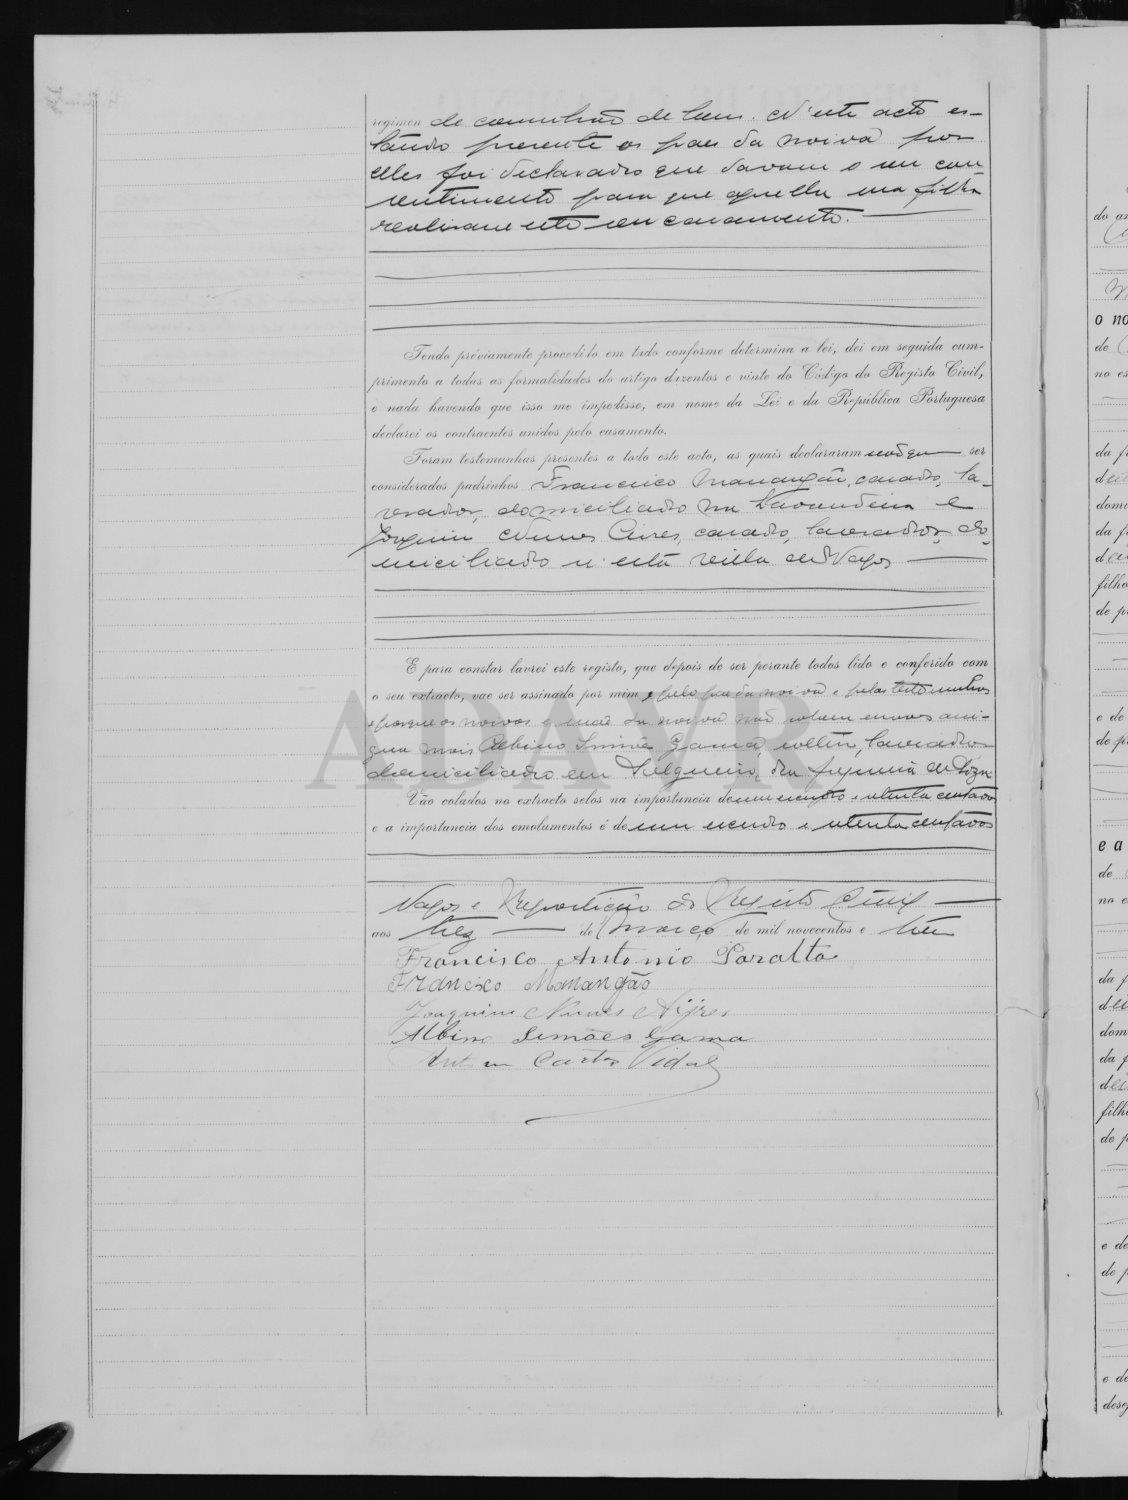 regimen de comunhão de bens. N'este acto es-
tando presente os paes da noiva por
elles foi declarado que davam o seu con
sentimento para que aquella sua filha
realisasse este seu casamento.
Tendo préviamente procedido em tudo conforme determina a lei, dei em seguida cum-
primento a todas as formalidades do artigo duzentos e vinte do Código do Registo Civil,
e nada havendo que isso me impedisse, em nome da Lei e da República Portuguesa
declarei os contraentes unidos pelo casamento.
Foram testemunhas presentes a todo este acto, as quais declararam não ser
considerados padrinhos Francisco Manangão, casado, la-
vrador, domiciliado na Lavandeira e
Joaquim Nunes Aires, casado, lavrador, do-
miciliado n'esta villa de Vagos
E para constar lavrei este registo, que depois de ser perante todos lido e conferido com
o seu extracto, vae ser assinado por mim, e pelo pae da noiva e pelas testemunhas
e porque os noivos e mãe da noiva não sabem escrever assi-
gna mais Albino Simões Gama, solteiro, lavrador
domiciliado em Salgueiro, da freguesia de Soza
Vão colados no extracto selos na importancia de um escudo e oitenta centavos
e a importancia dos emolumentos é de um escudo e oitenta centavos
Vagos e Repartição do Registo Civil
aos trez de Março de mil novecentos e
Francisco Antonio Paralta
Francisco Manangão
Joaquim Nunes Aijres
Albino Simões Gama
Carlos Vidal
ADAVR
do
o no
de
no es
da f
d
domi
da f
d
filho
de p
e de
de p
e a
de
no e
da f
d
dom
da p
d
filh
de p
e de
de p
e d
des